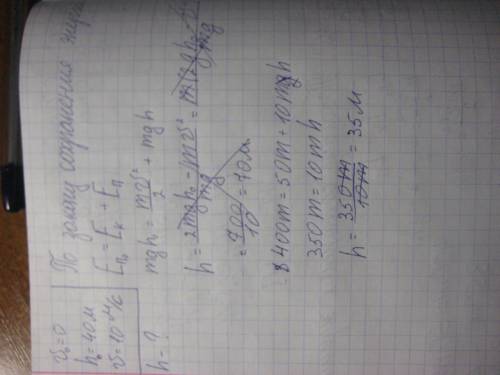 v₀=0
h₀=40м
v=10 м/с
h-?
По закону сохранения
Eп₀ = Eк + Eп
mgh₀ = mv²/2 + mgh
= 700/10 = 70м
400m = 50m + 10mgh
350m = 10mh
h = 350m/10m = 35м